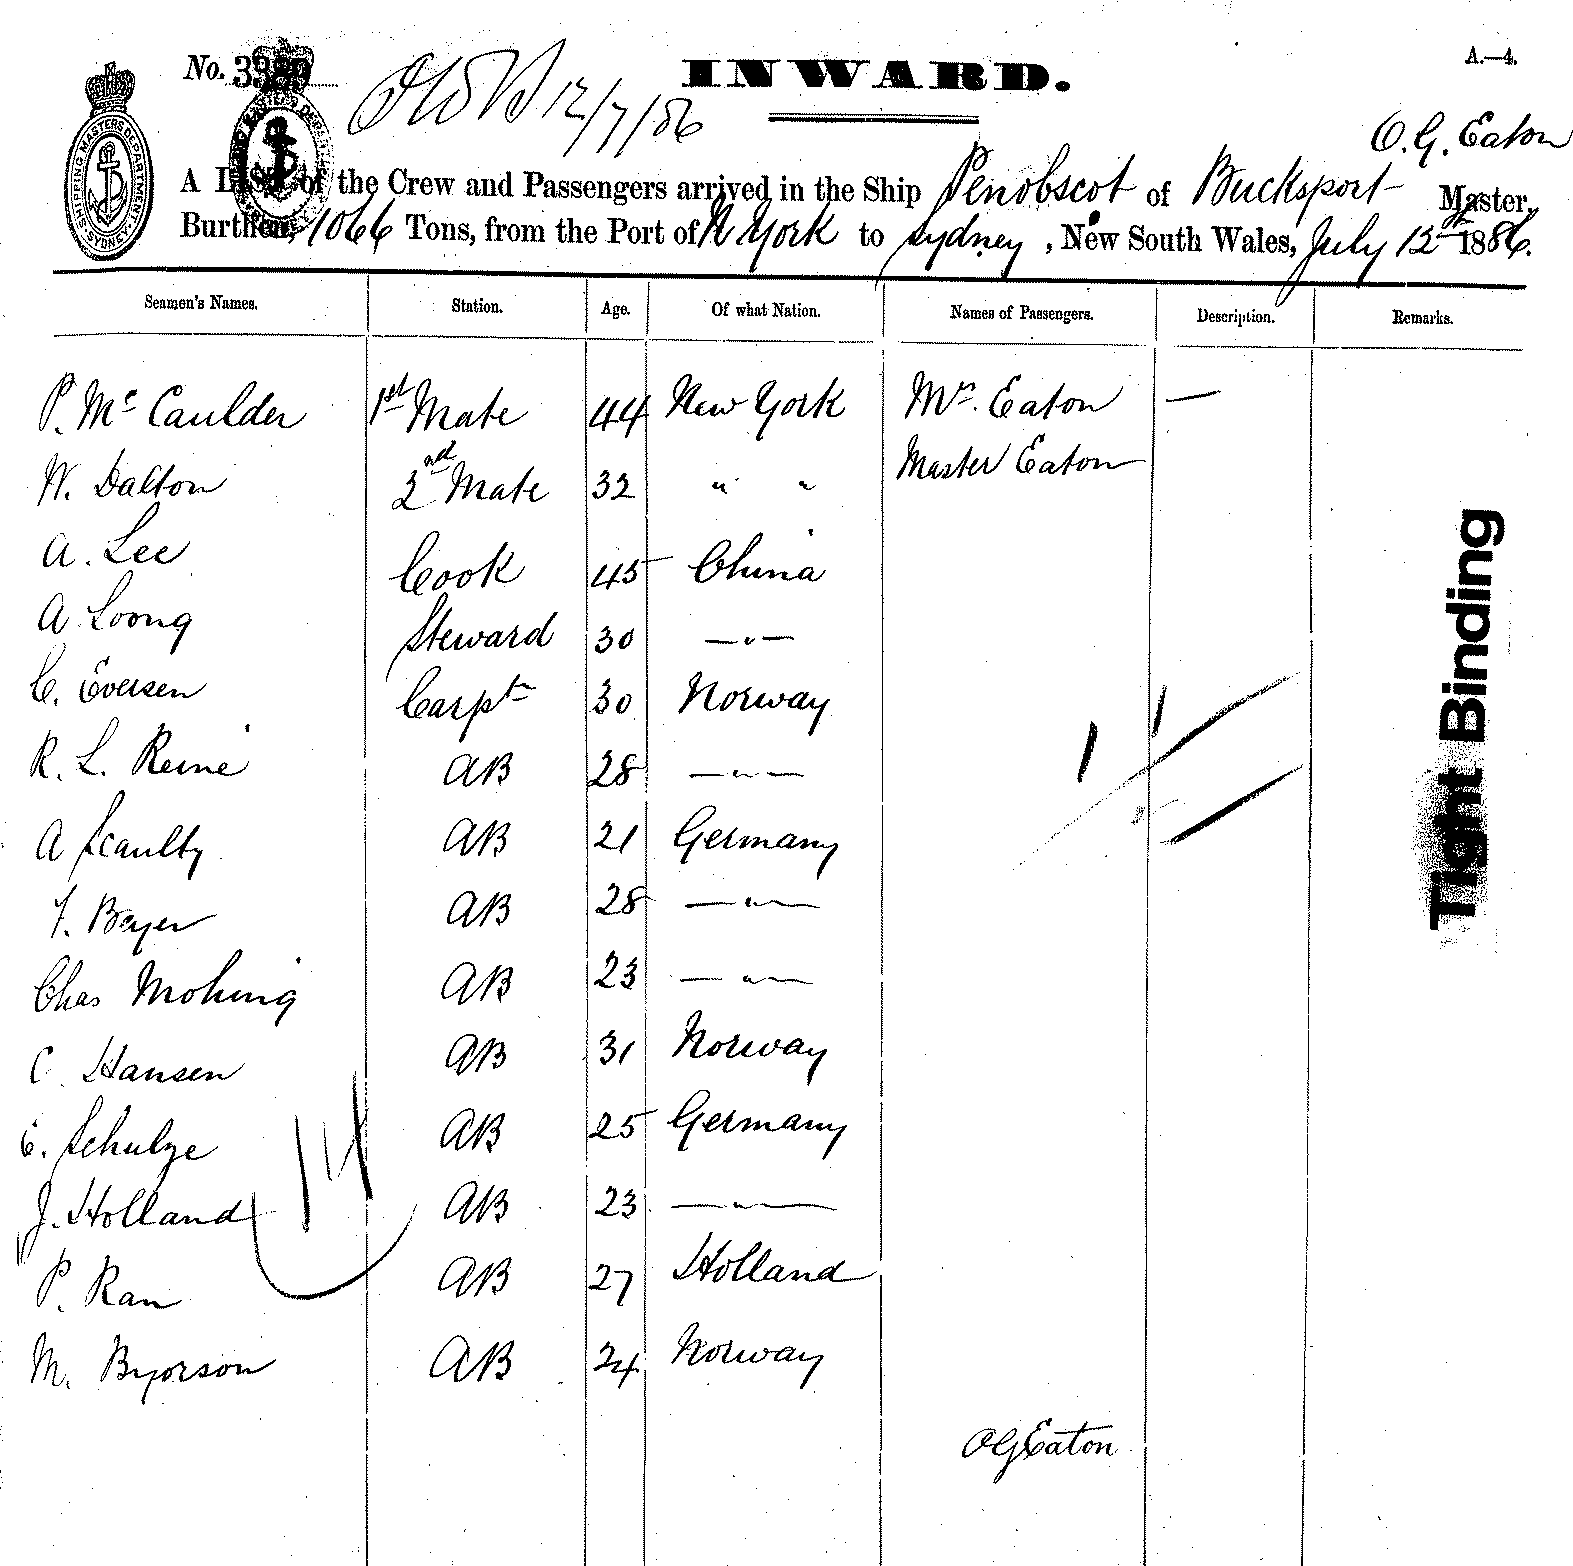 No.
INWARD.
A.—4.
12/7/86
O. G. Eaton
A List of the Crew and Passengers arrived in the Ship Penobscot of Bucksport Master,
Burthen, 1066 Tons, from the Port of N York to Sydney, New South Wales, July 12th 1886.
SHIPPING MASTERS DEPARTMENT SYDNEY
Seamen's Names. Station. Age. Of what Nation. Names of Passengers. Description. Remarks.
P. Mc Caulder 1st Mate 44 New York Mrs. Eaton —
W. Dalton 2nd Mate 32 " " Master Eaton
A. Lee Cook 45 China
A Loong Steward 30 — " —
C. Eversen Carptr 30 Norway
R. L. Reine AB 28 — " —
A Scaulty AB 21 Germany
F. Beyer AB 28 — " —
Chas Mohing AB 23 — " —
C. Hansen AB 31 Norway
C. Schulze AB 25 Germany
J. Holland AB 23 — " —
P. Ran AB 27 Holland
M. Byorson AB 24 Norway
14
11
Tight Binding
OG Eaton